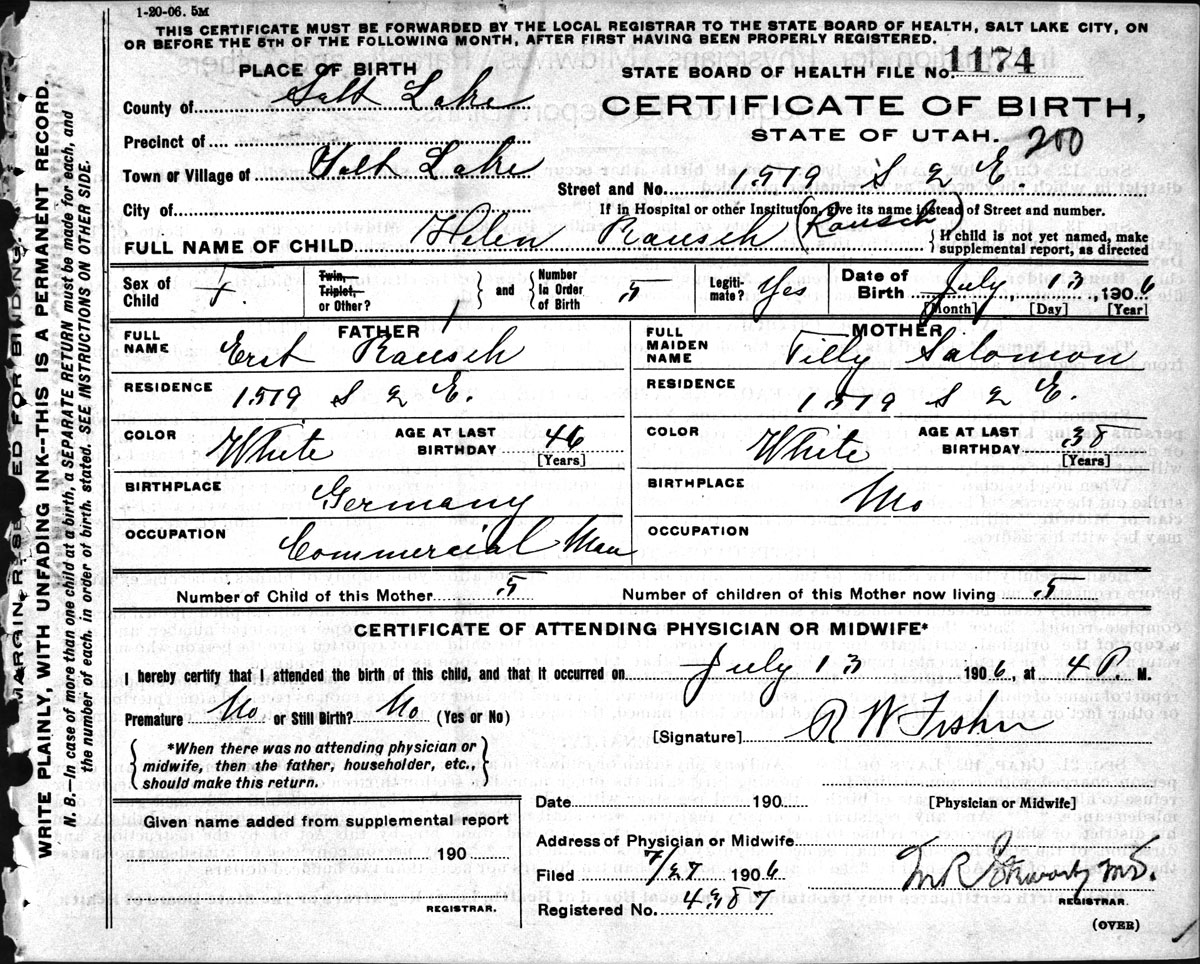 1-20-06. 5M
THIS CERTIFICATE MUST BE FORWARDED BY THE LOCAL REGISTRAR TO THE STATE BOARD OF HEALTH, SALT LAKE CITY, ON
OR BEFORE THE 5TH OF THE FOLLOWING MONTH, AFTER FIRST HAVING BEEN PROPERLY REGISTERED.
PLACE OF BIRTH
STATE BOARD OF HEALTH FILE No. 1174
County of Salt Lake
CERTIFICATE OF BIRTH,
STATE OF UTAH. 200
Precinct of
Town or Village of Salt Lake
Street and No. 1519 S 2 E
City of
If in Hospital or other Institution, give its name instead of Street and number.
FULL NAME OF CHILD Helen Rausch (Rausch) {If child is not yet named, make supplemental report, as directed
Sex of Child F. Twin, Triplet, or Other? 1 and {Number In Order of Birth 5 Legiti- mate? Yes Date of Birth July 13, 1906
[Month] [Day] [Year]
FATHER
FULL NAME Erst Rausch
RESIDENCE 1519 S 2 E.
COLOR White AGE AT LAST BIRTHDAY 46
[Years]
BIRTHPLACE Germany
OCCUPATION Commercial Man
MOTHER
FULL MAIDEN NAME Tilly Salomon
RESIDENCE 1519 S 2 E.
COLOR White AGE AT LAST BIRTHDAY 38
[Years]
BIRTHPLACE Mo
OCCUPATION
Number of Child of this Mother 5 Number of children of this Mother now living 5
CERTIFICATE OF ATTENDING PHYSICIAN OR MIDWIFE*
I hereby certify that I attended the birth of this child, and that it occurred on July 13 1906, at 4 P M.
Premature No or Still Birth? No (Yes or No)
[Signature] R W Fisher
{*When there was no attending physician or
midwife, then the father, householder, etc.,
should make this return.}
Date 190 [Physician or Midwife]
Given name added from supplemental report
190
REGISTRAR.
Address of Physician or Midwife
Filed 7/27 1906 M.D.
REGISTRAR.
Registered No. 4387
(OVER)
MARGIN RESERVED FOR BINDING
WRITE PLAINLY, WITH UNFADING INK--THIS IS A PERMANENT RECORD.
N. B.—In case of more than one child at birth, a SEPARATE RETURN must be made for each, and
the number of each, in order of birth, stated. SEE INSTRUCTIONS ON OTHER SIDE.